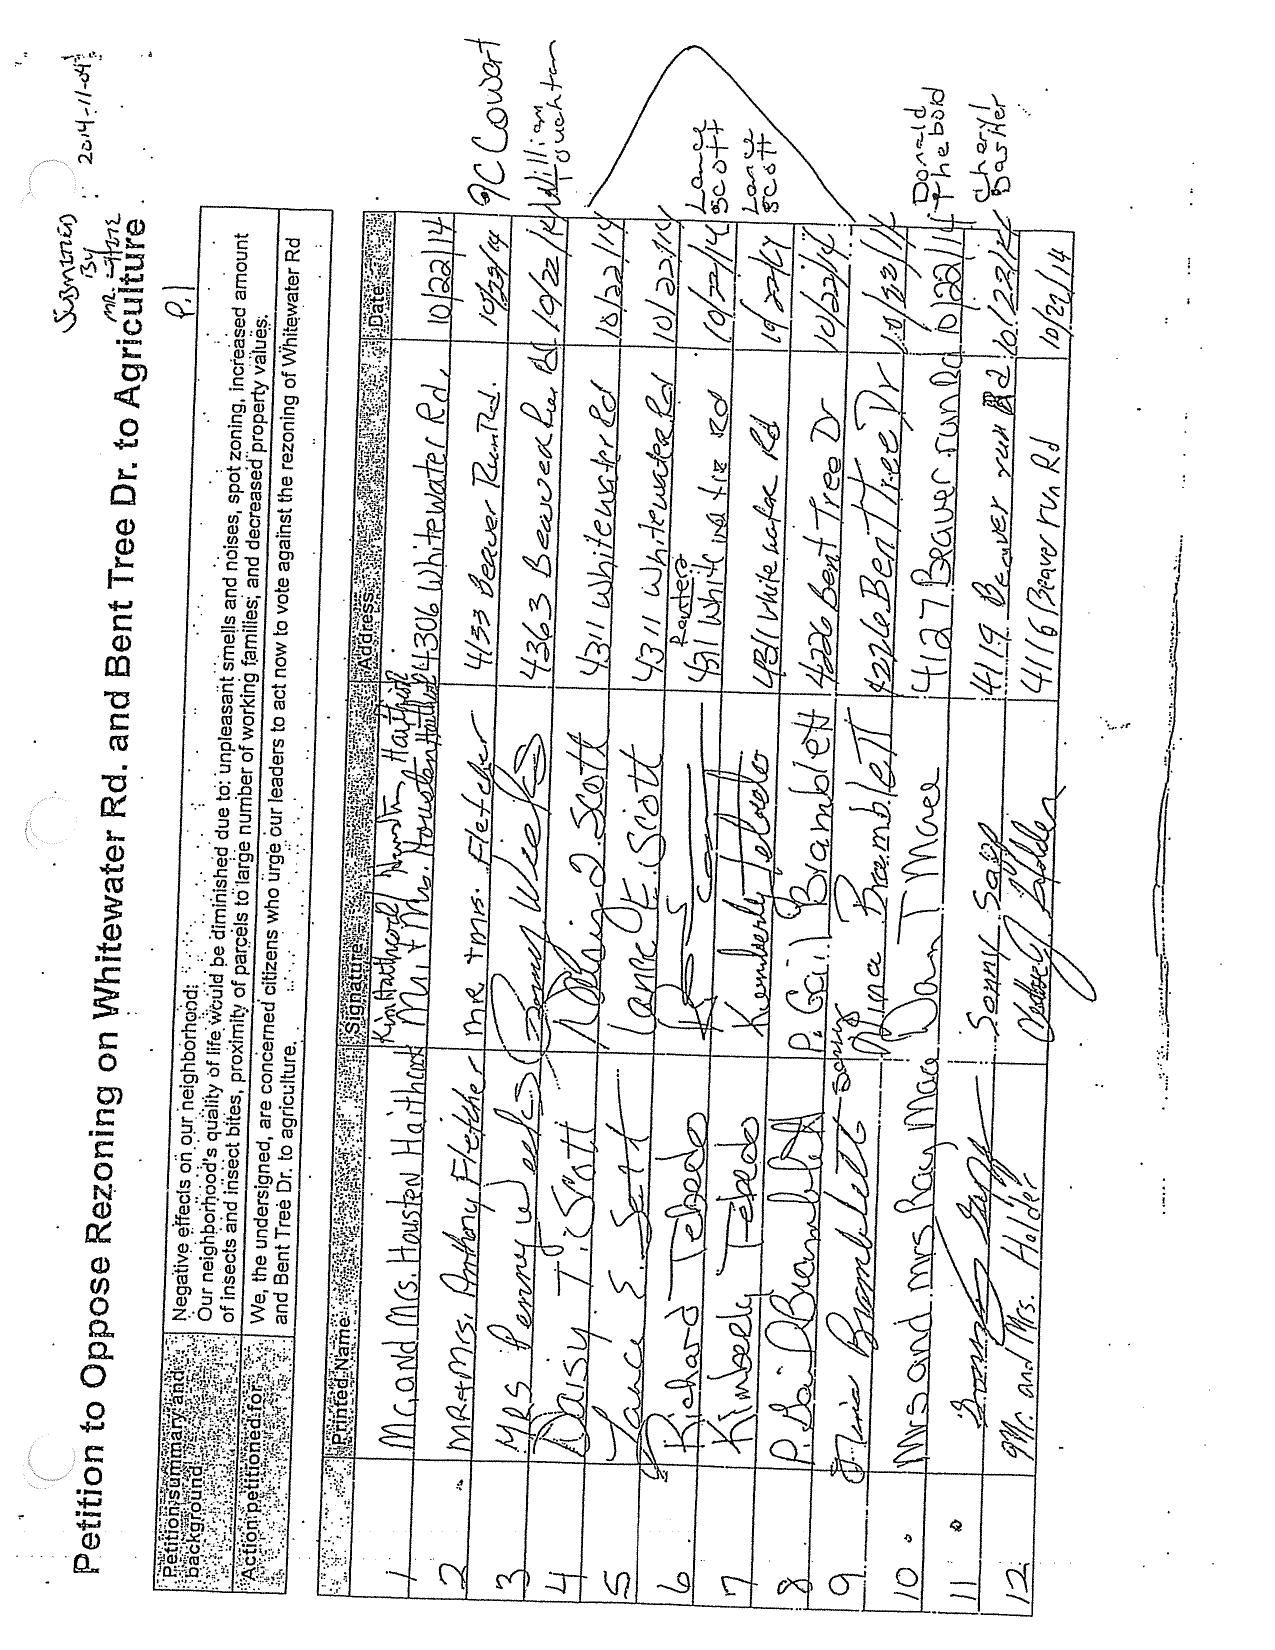 SUBMITTED
BY
MR. 2014-11-04
Petition to Oppose Rezoning on Whitewater Rd. and Bent Tree Dr. to Agriculture
P.1
Petition summary and background
Negative effects on our neighborhood:
Our neighborhood's quality of life would be diminished due to: unpleasant smells and noises, spot zoning, increased amount
of insects and insect bites, proximity of parcels to large number of working families, and decreased property values.
Action petitioned for
We, the undersigned, are concerned citizens who urge our leaders to act now to vote against the rezoning of Whitewater Rd
and Bent Tree Dr. to agriculture.
Printed Name Signature Address Date
1 Mr. and Mrs. Houston Haithcock Mr. + Mrs. Houston 4306 Whitewater Rd. 10/22/14
2 MR + MRS. Anthony Fletcher MR + MRS. Fletcher 4133 Beaver Run Rd. 10/23/14 JC Cowart
3 MRS Penny Weeks Penny Weeks 4363 Beaver Run Rd 10/22/14 William
4 Daisy T. Scott 4311 Whitewater Rd 10/22/14
5 Lance E. Scott Lance E. Scott 4311 Whitewater Rd 10/22/14
6 Richard Teboedo Rd 10/22/14 Lance Scott
7 Kimberly Tebedo Kimberly Tebedo 4311 White water Rd 10/22/14 Lance Scott
8 P. Gail Bramblett P. Gail Bramblett 4226 Bent Tree Dr 10/22/14
9 Bramblett Bramblett 4226 Bent Tree Dr 10/22/14
10 Mrs and Mrs Ray Mace Dan T Mace 4127 Beaver run Rd 10/22/14 Donald Thebold
11 Sonny 4119 Beaver run Rd 10/22/14 Cheryl Dasher
12 Mr. and Mrs. Holder Holder 4116 Beaver run Rd 10/22/14